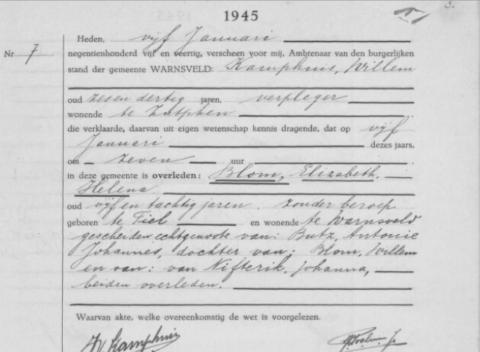 1945
Heden, vijf Januari
Nr 7
negentienhonderd vijf en veertig, verscheen voor mij, Ambtenaar van den burgerlijken
stand der gemeente WARNSVELD: Kamphuis, Willem
oud zesendertig jaren, verpleger
wonende te Zutphen
die verklaarde, daarvan uit eigen wetenschap kennis dragende, dat op vijf
Januari dezes jaars,
om zeven uur
in deze gemeente is overleden: Blom, Elizabeth
Helena
oud vijf en tachtig jaren. zonder beroep
geboren te Tiel en wonende te Warnsveld
gescheiden echtgenoote van: Butz, Antonie
Johannes, dochter van: Blom, Willem
en van: van Nifterik, Johanna,
beiden overleden.
Waarvan akte, welke overeenkomstig de wet is voorgelezen.
W Kamphuis